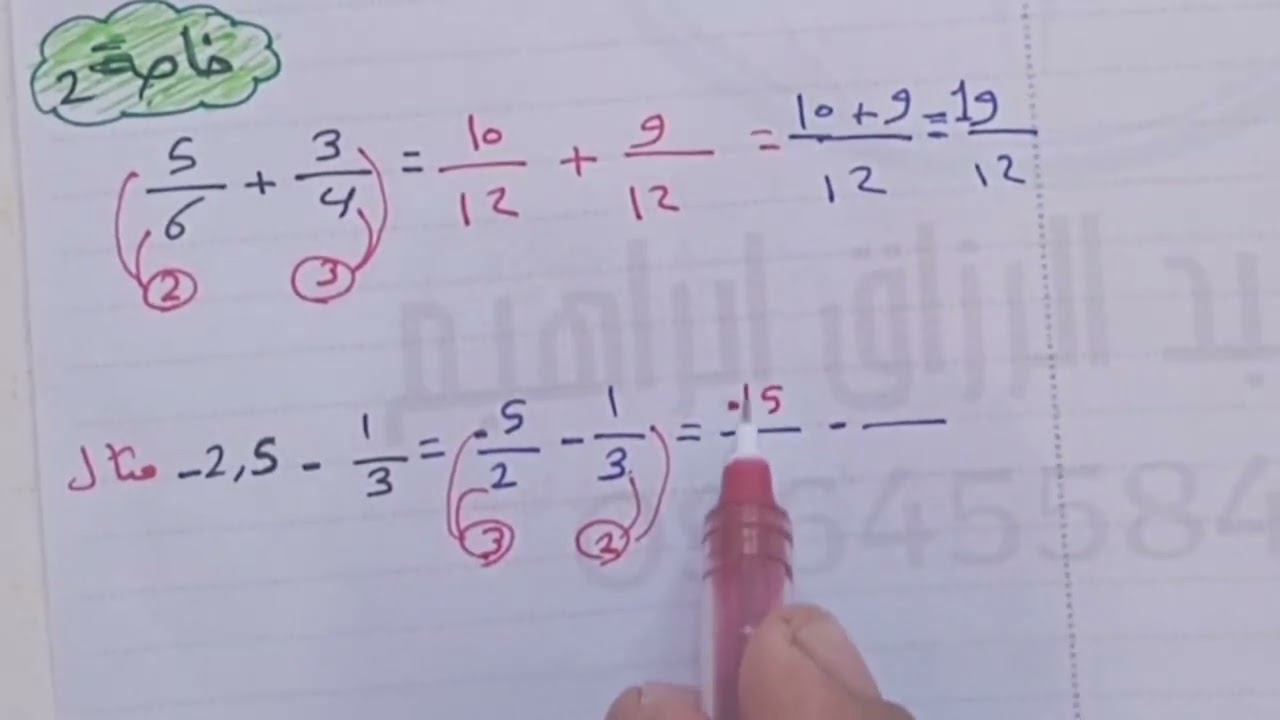 خاصة 2
5/6 + 3/4 = 10/12 + 9/12 = 10+9/12 = 19/12
2 3
مثال -2,5 - 1/3 = -5/2 - 1/3 = -15/ -
3 2
عبد الرزاق ابراهيم